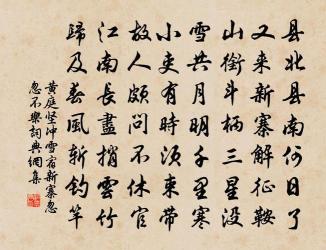 县北县南何日了
又来新寨解征鞍
山衔斗柄三星没
雪共月明千里寒
小吏有时须束带
故人颇问不休官
江南长尽捎云竹
归及春风斩钓竿
黄庭坚冲雪宿新寨忽
忽不乐词典网集